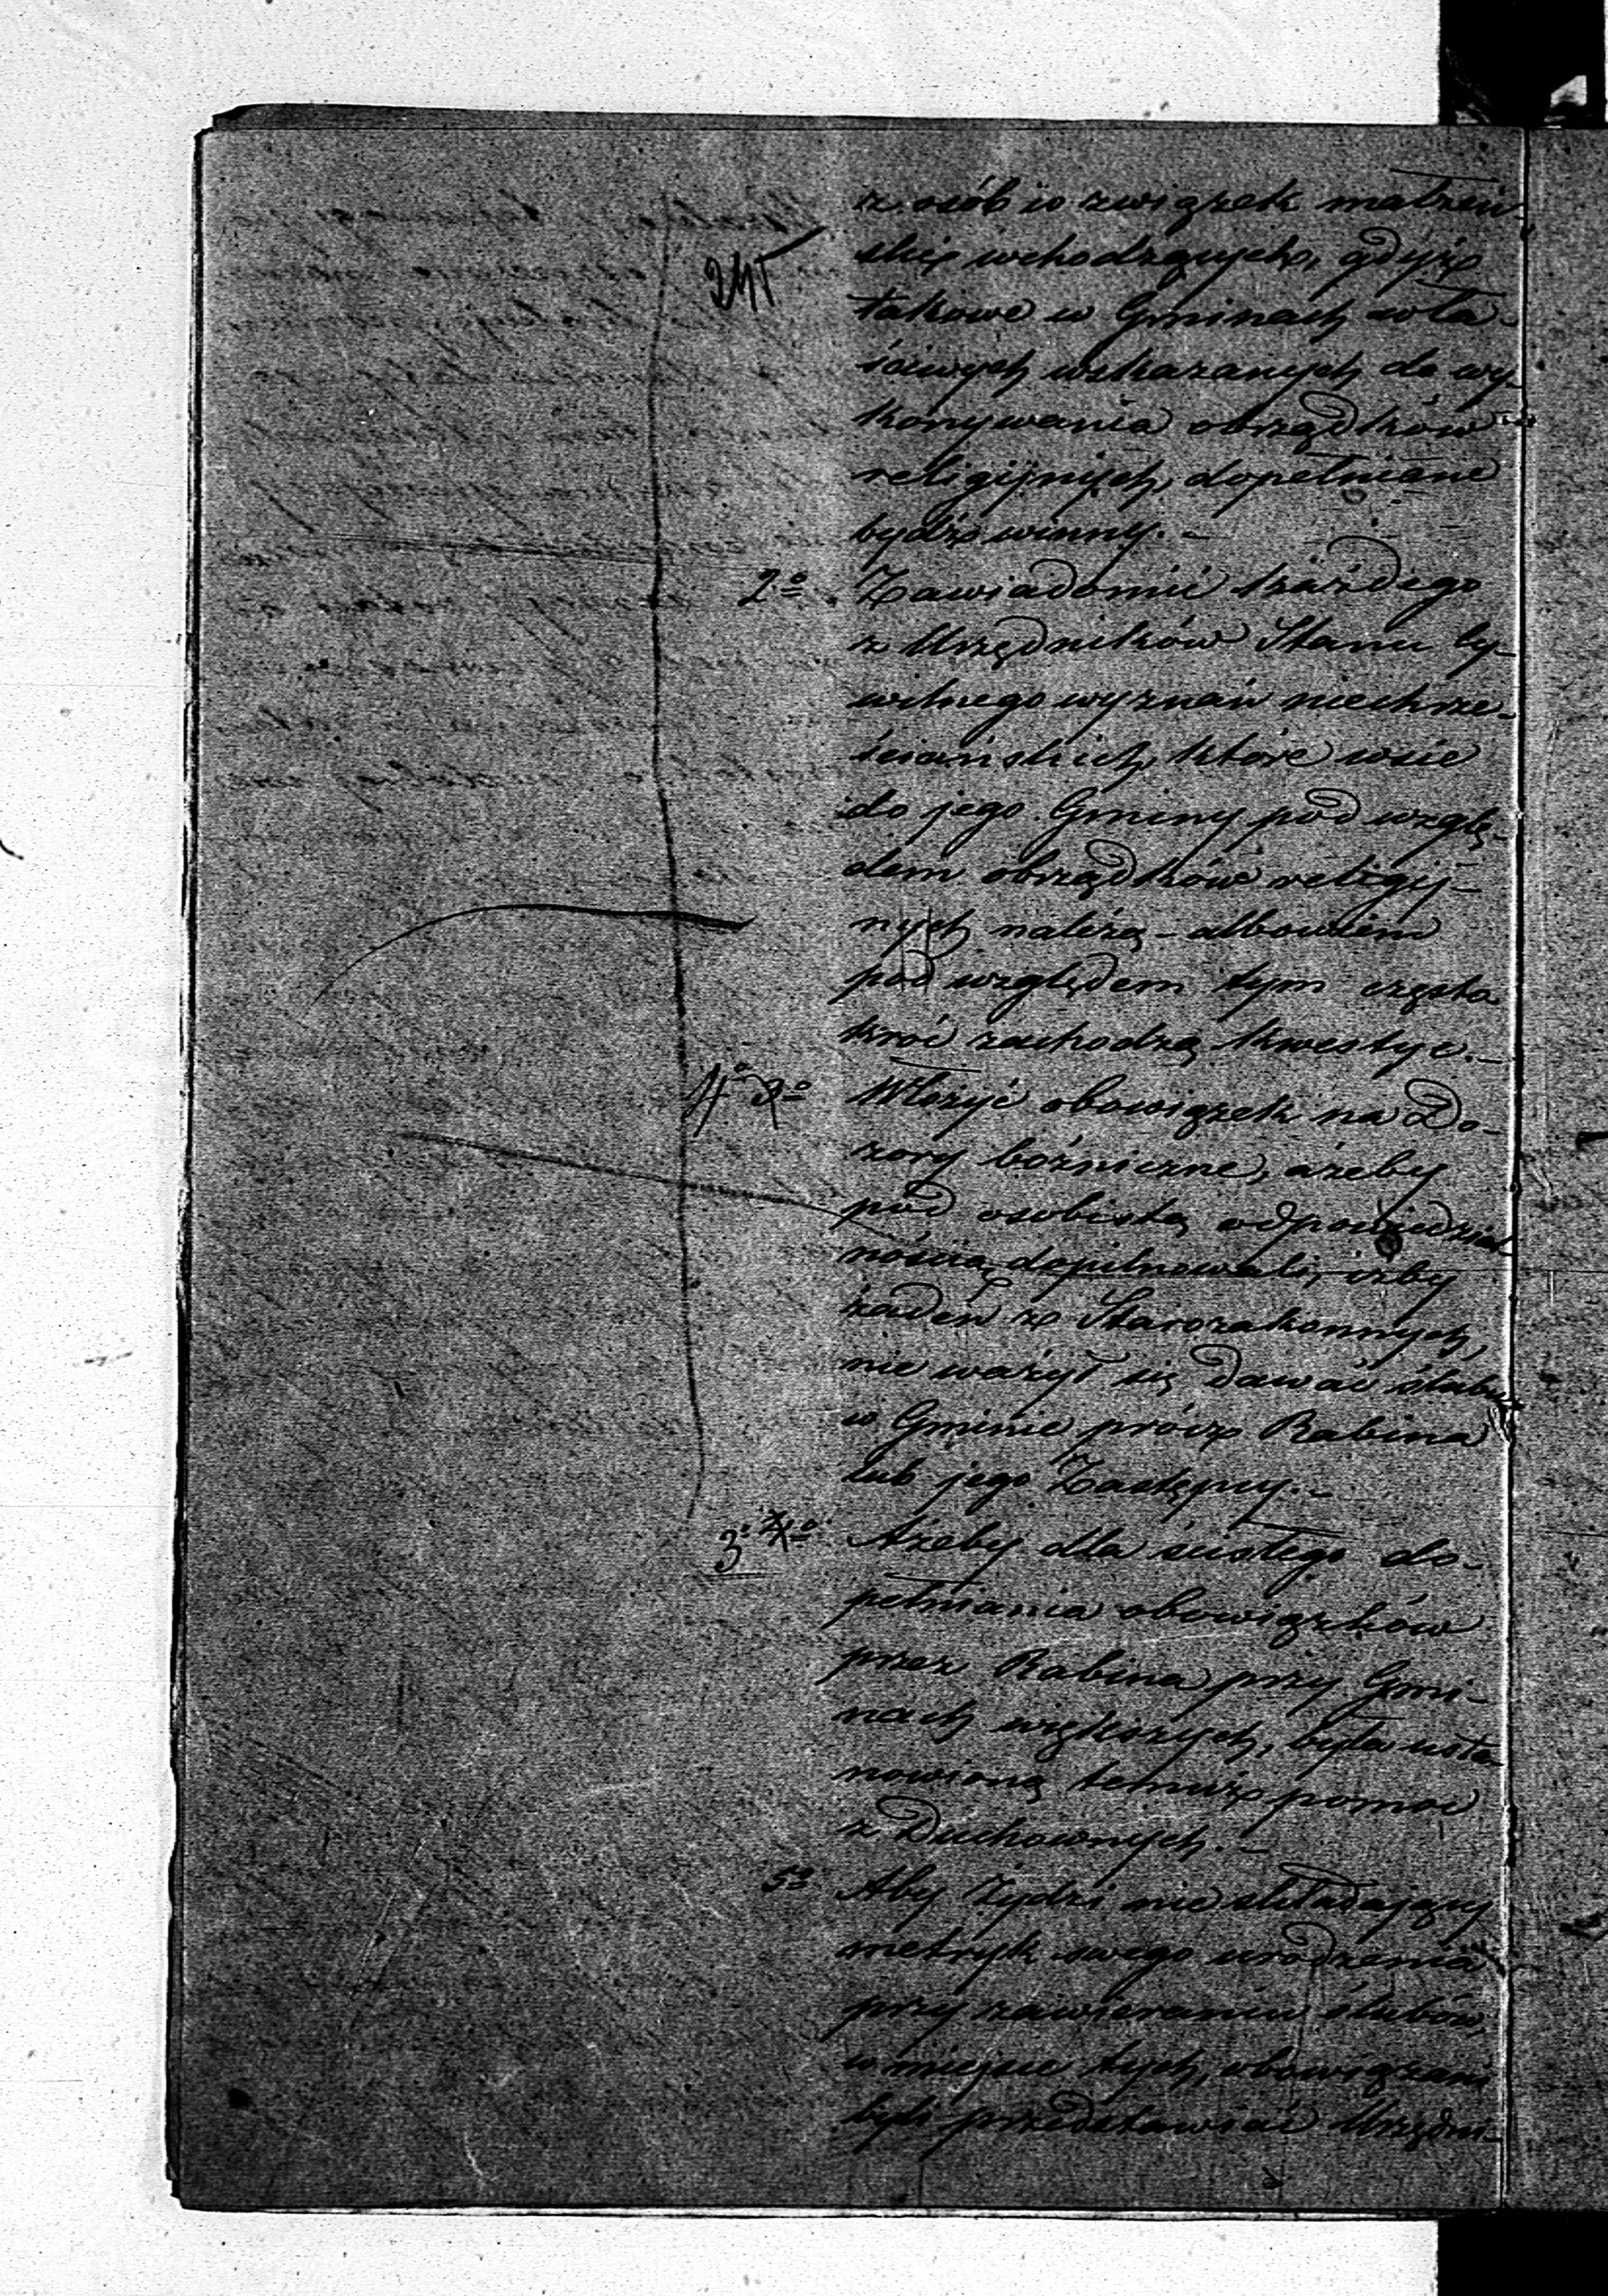 z osób w związek małżeń-
skiz wchodzących, gdyż
takowe w Gminach wła-
ściwych wskazanych do wy-
konywania obrządków
religijnych, dopełniane
bydź winny.-
2o Zawiadomić każdego
z Urzędników Stanu Cy-
wilnego wyznań niechrze-
ściańskich, które wsie
do jego Gminy pod wzglę-
dem obrządków religij-
nych należą - albowiem
pod względem tym często
kroć zachodzą kwestye.-
4o 3o Włożyć obowiązek na Do-
zory bóżniczne, ażeby
pod osobistą odpowiedzial-
nością dopilnowali, iżby
żaden z Starozakonnych,
nie ważył się dawać ślubu
w Gminie prócz Rabina
lub jego Zastępcy.-
3o 4o Ażeby dla ścisłego do-
pełniania obowiązków
przez Rabina przy Gmi-
nach większych, była usta-
nowioną temuż pomoc
z Duchownych.-
5o Aby Żydzi nie składający
metryk swego urodzenia
przy zawieraniu ślubów,
w miejsce tych, obowiązani
byli przedstawiać Urzędni-